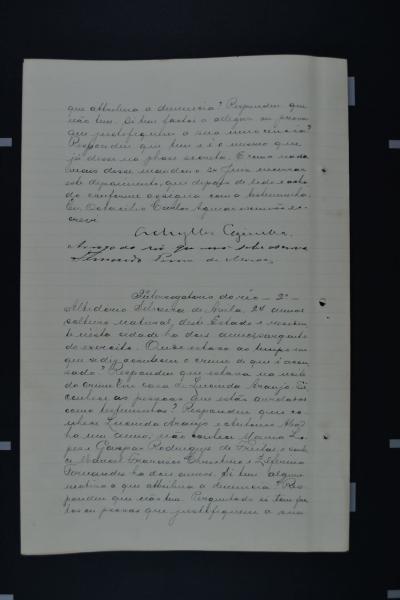 que attribua a denuncia? Respondeu que
não tem. Si tem factos a allegar ou provas
que justifiquem a sua innocencia?
Respondeu que tem e é o mesmo que
já disse na phase secreta. E como nada
mais disse mandou o Sr. Juiz encerrar
este depoimento, que depois de lido e acha
do conforme assigna com a testemunha.
Eu, Octacilio Escrivão
crevi.
A rogo do réo por não saber escrever
Fernando de Moraes
Interrogatorio do réo - 2º -
Silveira de Avila, 24 annos
solteiro, natural deste Estado e residen
te nesta cidade ha dois annos, sargento
do exercito. Onde estava ao tempo em
que se diz aconteceu o crime de que é accu
sado? Respondeu que estava na noite
do crime em casa de Lucinda Araujo. Si
conhece as pessoas que estão arroladas
como testemunhas? Respondeu que co
nhece Lucinda Araujo e Antonio
ha um anno, não conhece Maria Lo
pes e Gaspar Rodrigues de Freitas e conhe
ce Manoel Francisco e Zeferino
Fernandes ha dois annos. Si tem algum
motivo a que attribua a denuncia? Res
pondeu que não tem. Perguntado si tem fac
tos ou provas que justifiquem a sua